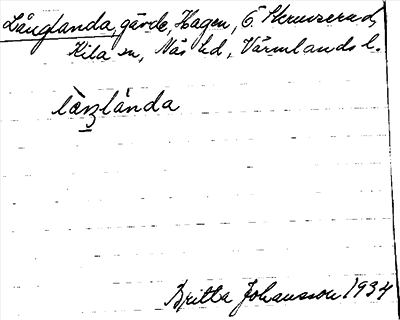 Långlanda, gärde, Hagen, Ö. Skruvserud,
Kila sn, Näs hd, Värmlands l.
Britta Johansson 1934